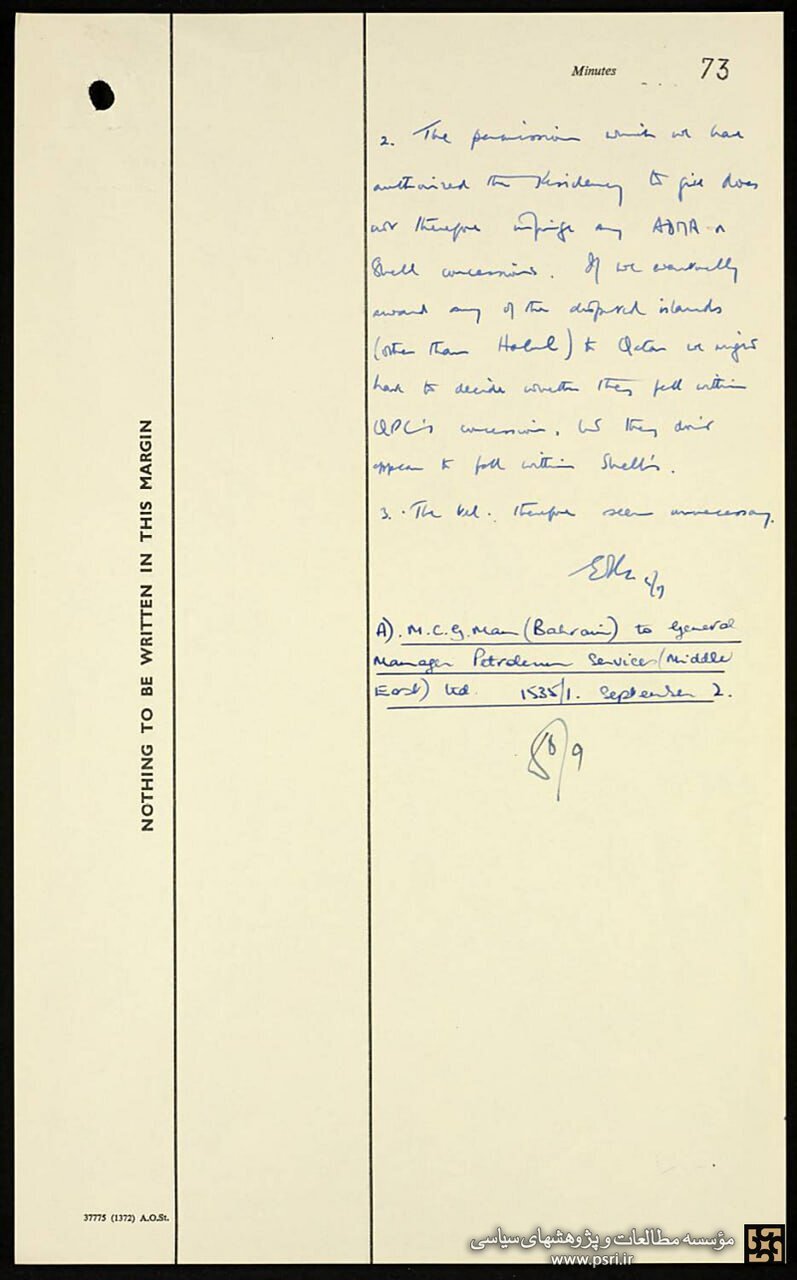 Minutes 73
2. The permission which we have
authorised the Residency to give does
not therefore infringe any ADMA or
Shell concessions. If we eventually
award any of the disputed islands
(other than Halul) to Qatar we might
have to decide whether they fell within
QPC's concession, but they don't
appear to fall within Shell's.
3. The tel. therefore seems unnecessary.
A). M.C.G. Man (Bahrain) to General
Manager Petroleum Services (Middle
East) Ltd. 1535/1. September 2.
8/9
NOTHING TO BE WRITTEN IN THIS MARGIN
37775 (1372) A.O.St.
مؤسسه مطالعات و پژوهشهای سیاسی
www.psri.ir